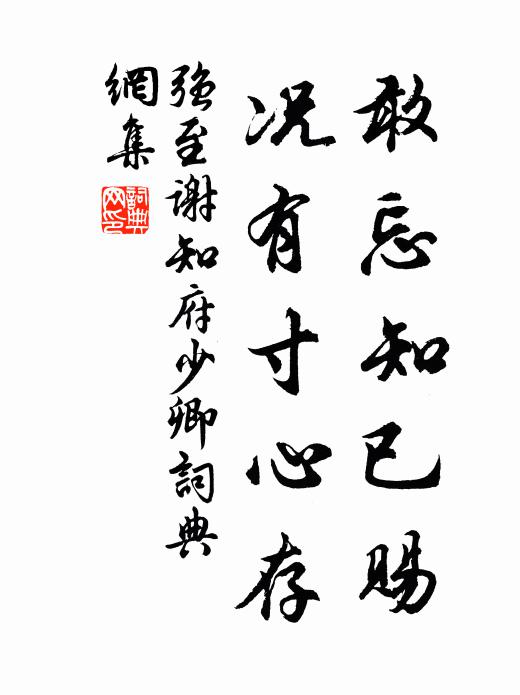 敢忘知已賜
况有寸心存
強至謝知府少卿詞典
網集
詞典
网印